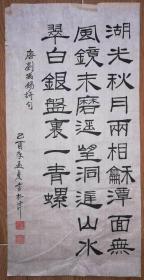 湖光秋月兩相龢潭面無
風鏡未磨遙望洞庭山水
翠白銀盤裏一青螺
唐劉禹錫詩句
己酉年孟夏書於